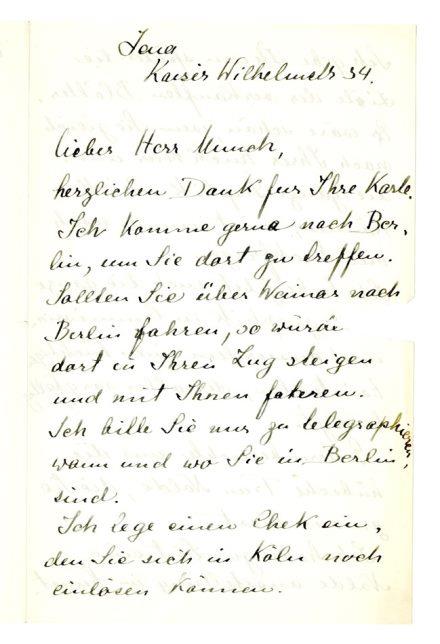 Jena
Kaiser Wilhelmstr 34.
lieber Herr Munch,
herzlichen Dank fur Ihre Karte.
Ich komme gerne nach Ber-
lin, um Sie dort zu treffen.
Sollten Sie über Weimar nach
Berlin fahren, so würde
dort in Ihren Zug steigen
und mit Ihnen fahren.
Ich bitte Sie mir zu telegraphieren,
wann und wo Sie in Berlin
sind.
Ich lege einen Chek ein,
den Sie sich in Köln noch
einlösen können.